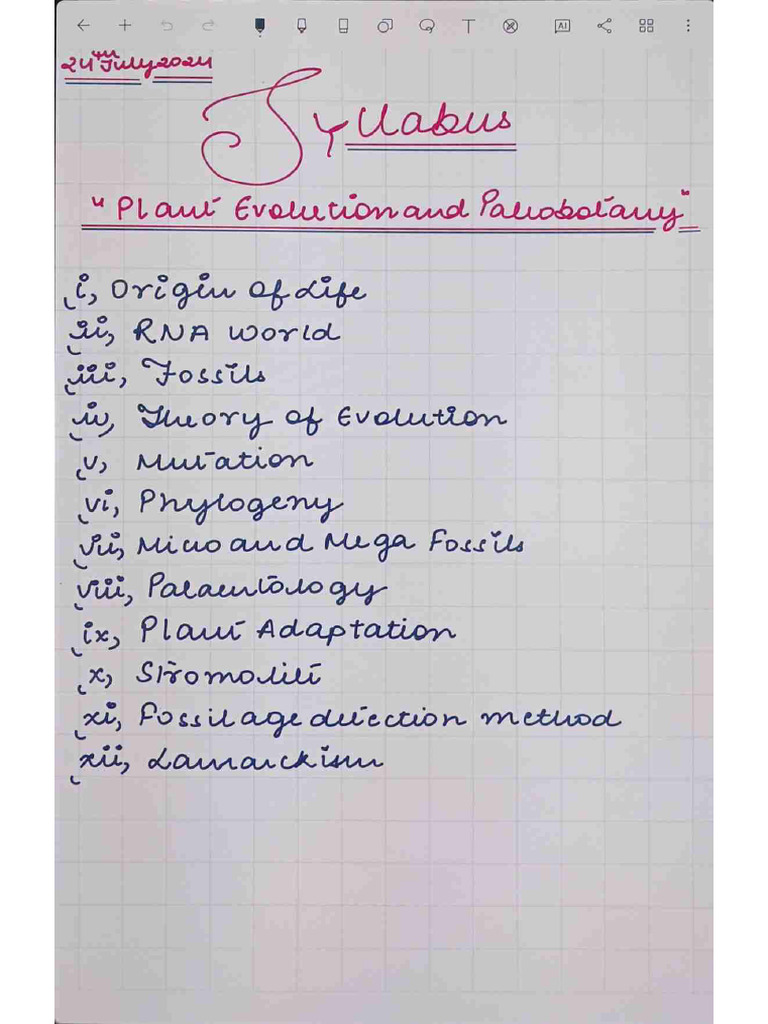 24th July 2024
Syllabus
"Plant Evolution and Paleobotany"
i, Origin of Life
ii, RNA World
iii, Fossils
iv, Theory of Evolution
v, Mutation
vi, Phylogeny
vii, Micro and Mega Fossils
viii, Palaentology
ix, Plant Adaptation
x, Stromolite
xi, Fossil age detection method
xii, Lamarckism